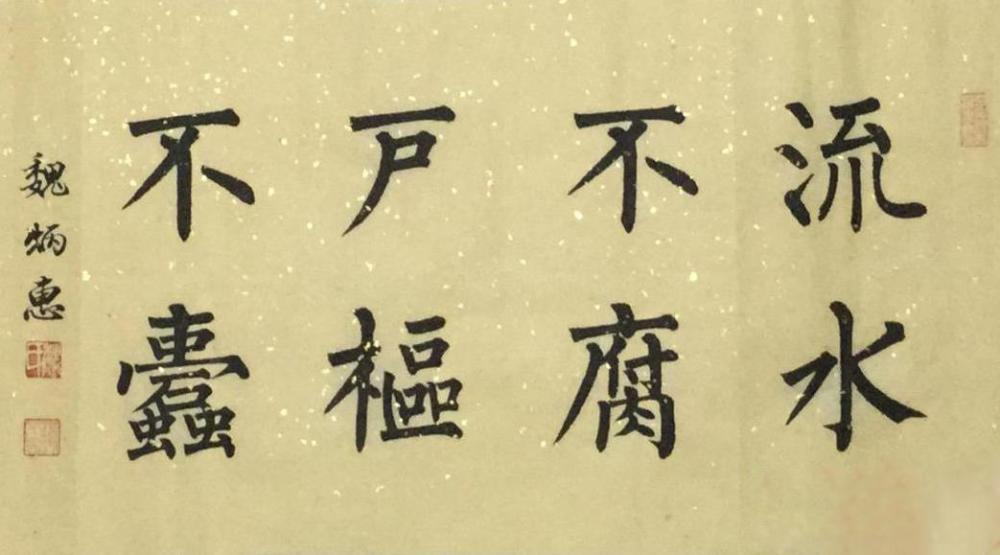 流水
不腐
戸樞
不蠹
魏炳惠